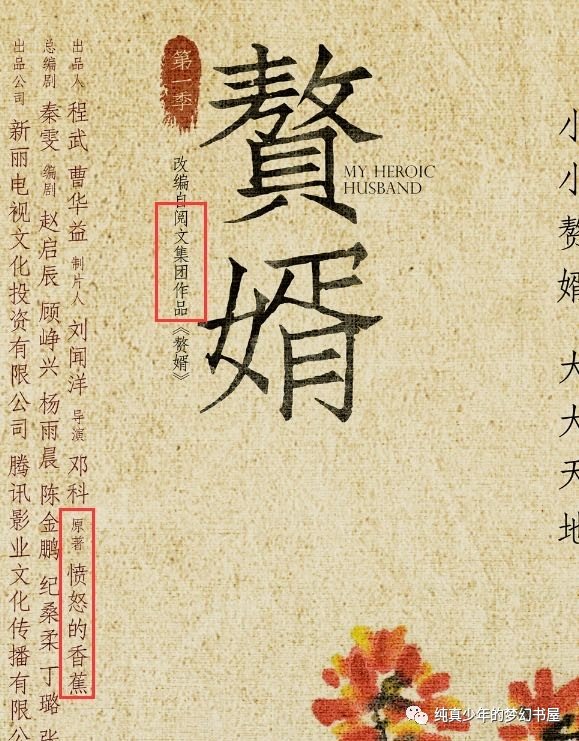 小小赘婿 大大天地
赘婿
MY HEROIC
HUSBAND
第一季
改编自阅文集团作品《赘婿》
出品人 程武 曹华益 制片人 刘闻洋 导演 邓科 原著 愤怒的香蕉
总编剧 秦雯 编剧 赵启辰 顾峥兴 杨雨晨 陈金鹏 纪桑柔 丁璐 张
出品公司 新丽电视文化投资有限公司 腾讯影业文化传播有限公
纯真少年的梦幻书屋